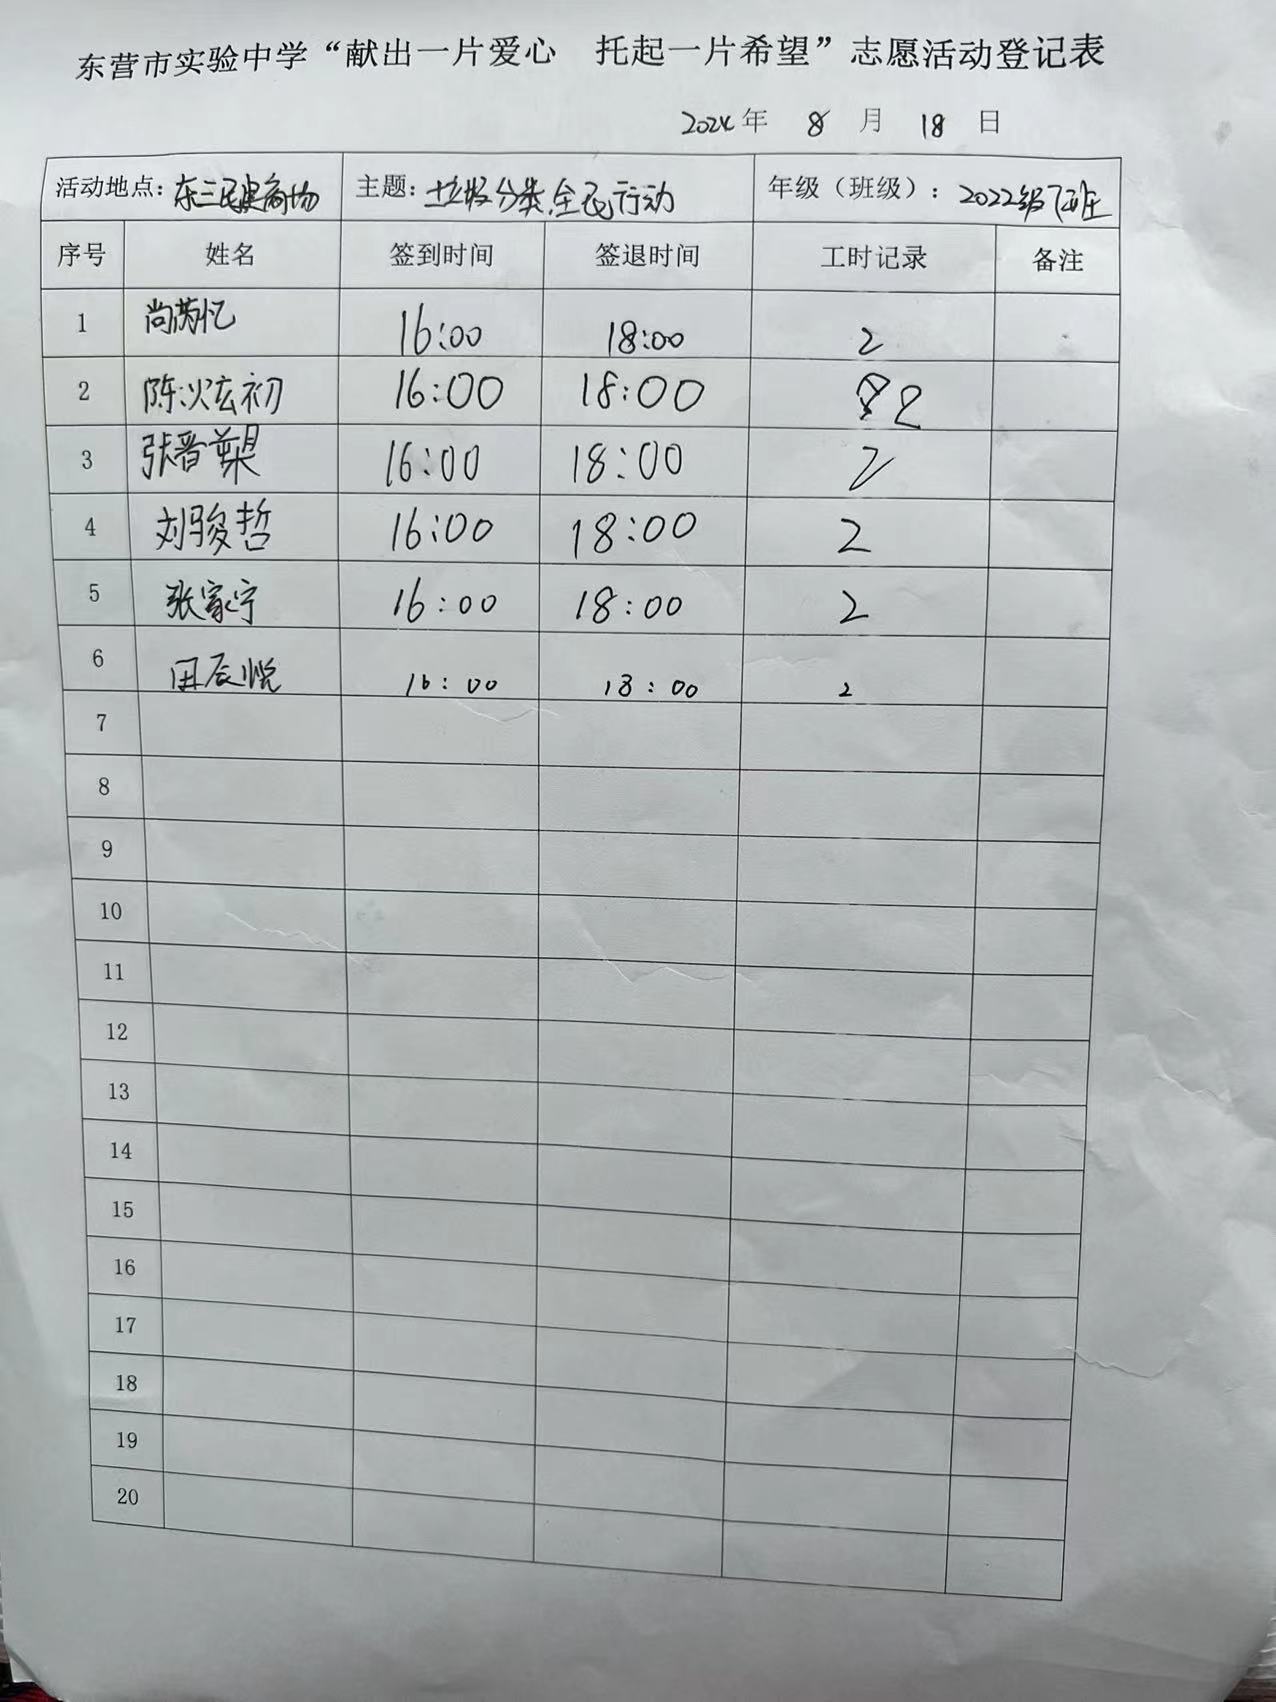 东营市实验中学“献出一片爱心 托起一片希望”志愿活动登记表
2024年 8 月 18 日
活动地点：东三 商场 主题：垃圾分类,全民行动 年级（班级）：2022级
序号 姓名 签到时间 签退时间 工时记录 备注
1 尚芮忆 16:00 18:00 2
2 陈 炫初 16:00 18:00 2
3 张晋 16:00 18:00 2
4 刘骏哲 16:00 18:00 2
5 张家宁 16:00 18:00 2
6 田辰悦 16:00 18:00 2
7
8
9
10
11
12
13
14
15
16
17
18
19
20